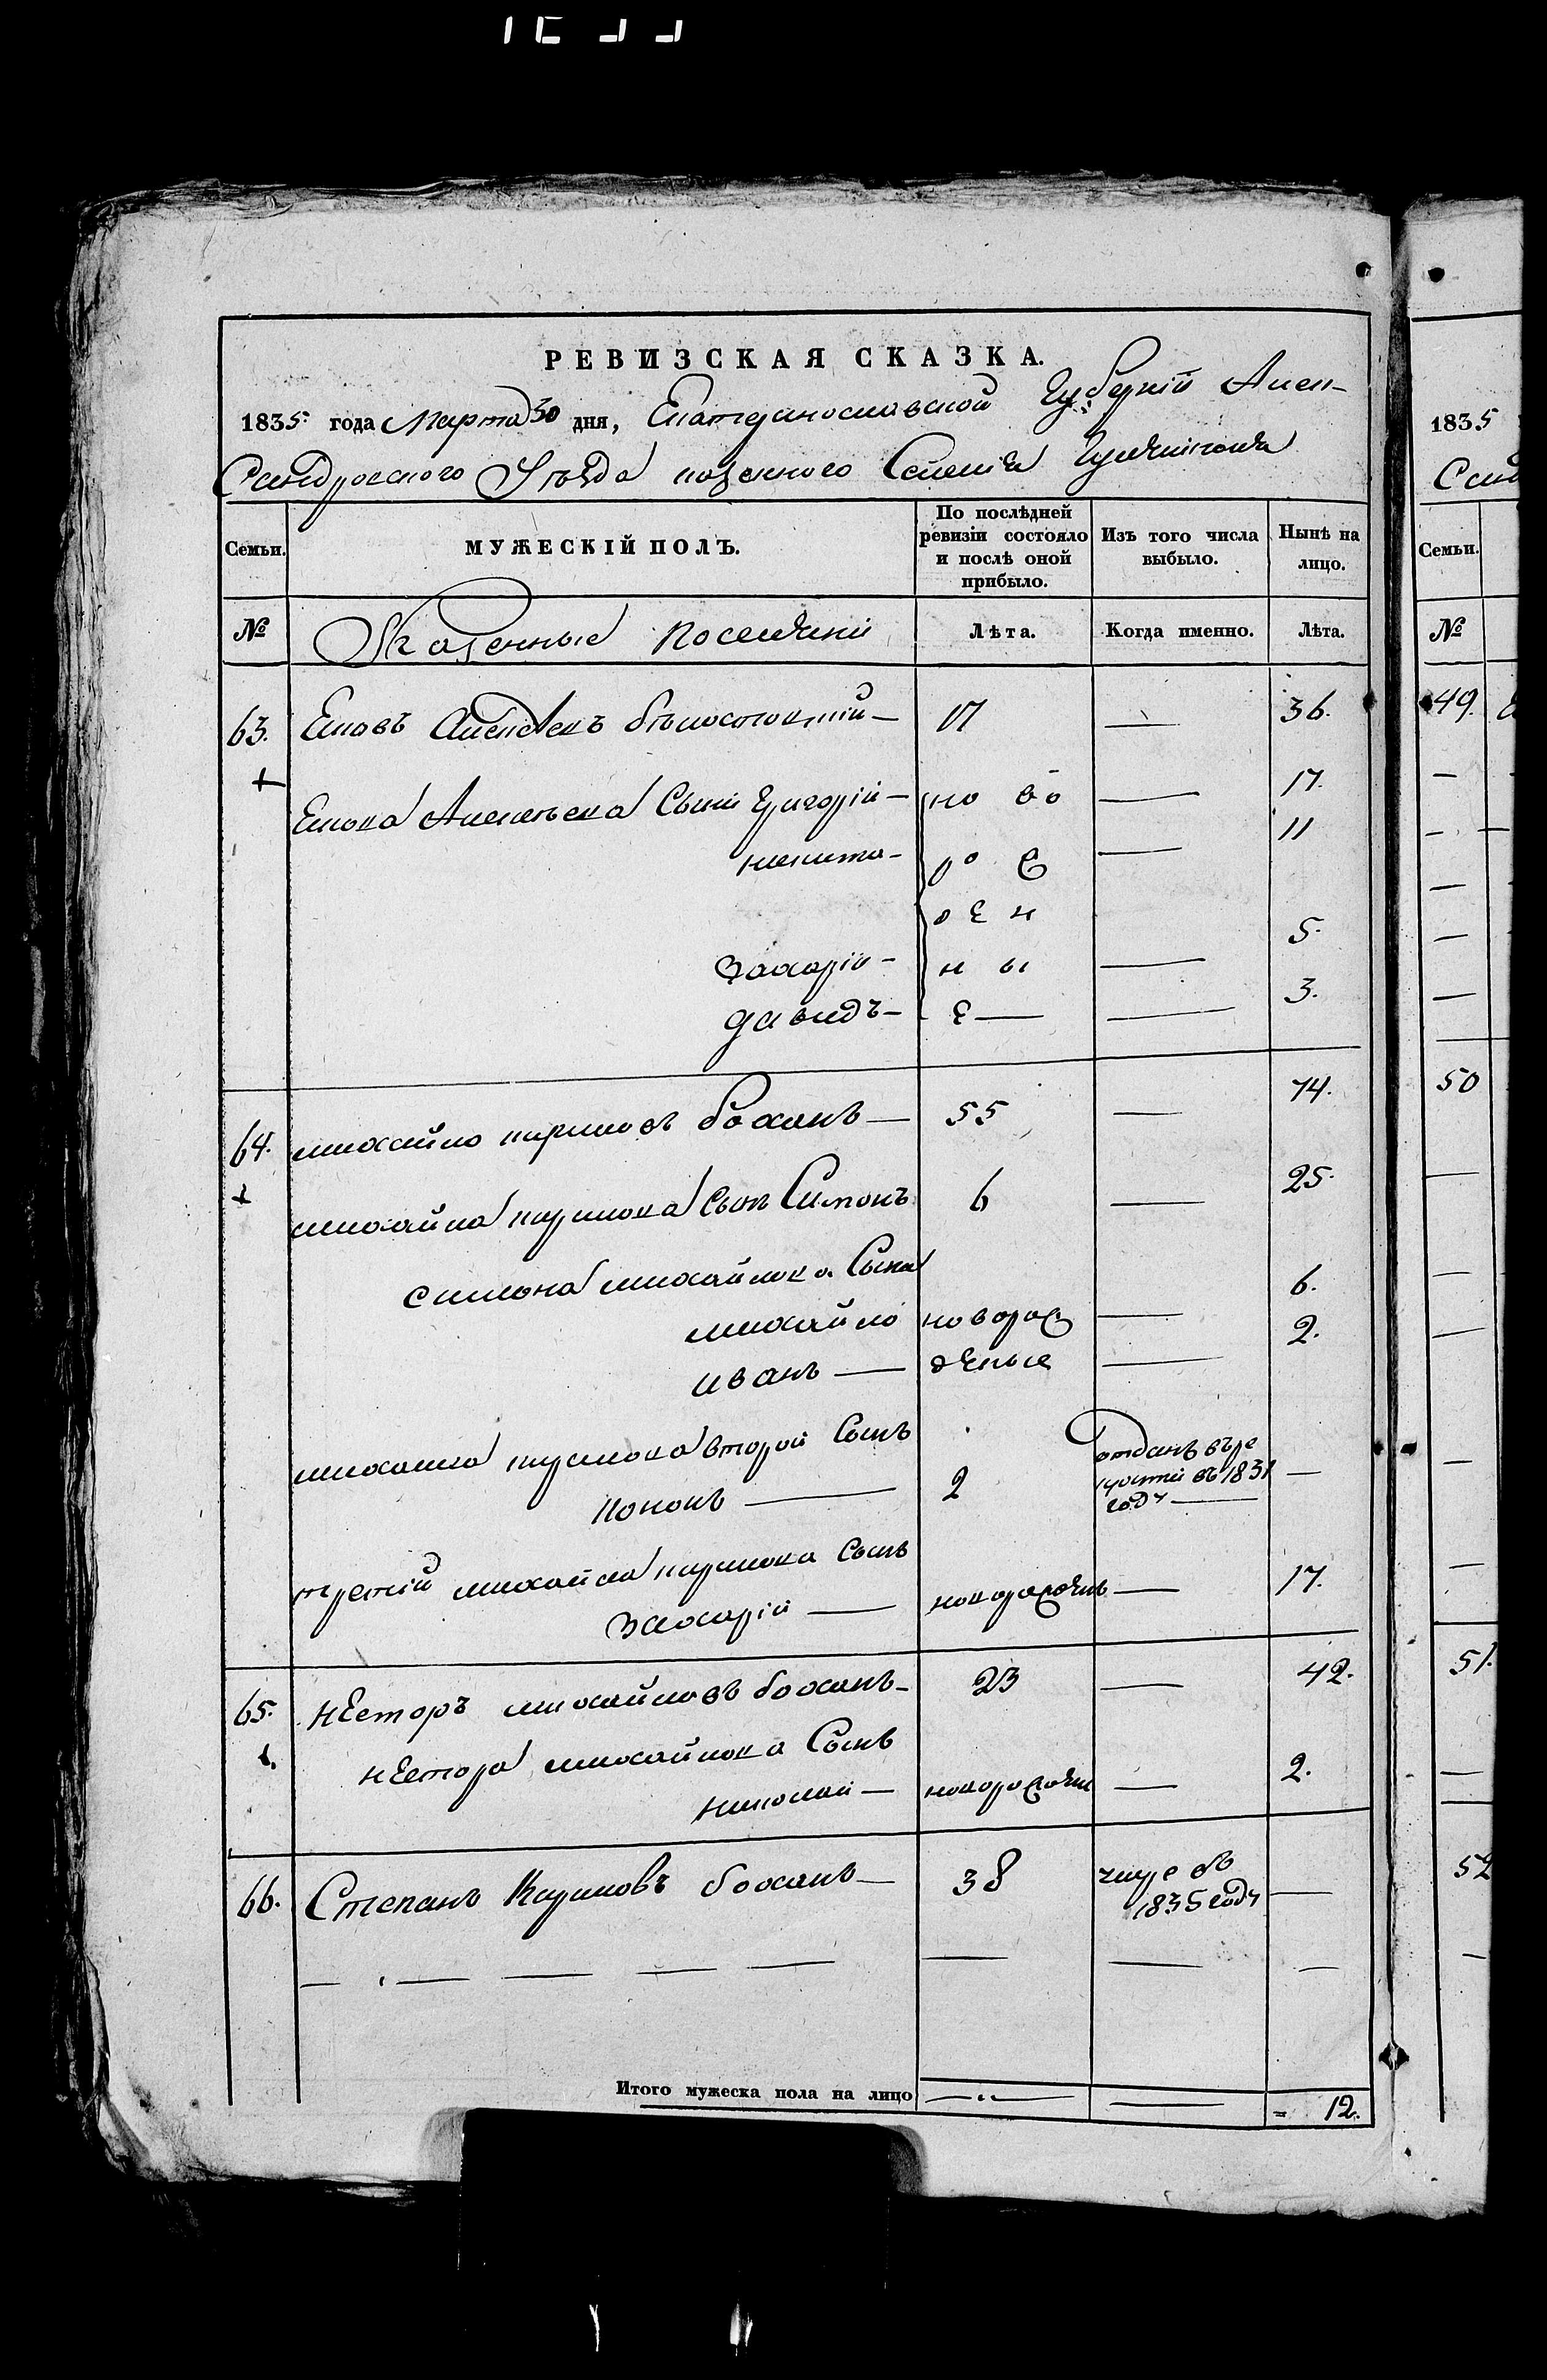 РЕВИЗСКАЯ СКАЗКА.
1835 года Марта 30 дня, Екатеринославской Губерніи Алек-
сандровского Уезда казенного Селенія
Семьи.
МУЖЕСКІЙ ПОЛЪ.
По послѣдней ревизіи состояло и послѣ оной прибыло.
Изъ того числа выбыло.
Нынѣ на лицо.
№
Казенные поселяни
Лѣта.
Когда именно.
Лѣта.
63. Алексеевъ 17 — 36.
Алексеева Сыни Григорій — но во — 17.
никита — ро ж — 11
д е н
Захарій — н ы — 5.
давидъ — е — — 3.
64. михайло кириловъ боханъ — 55 — 74.
михайла кирилова Сынъ Симонъ 6 — 25.
симона михайлова Сына
михайло новорож — 6.
иванъ — деные — 2.
михайла кирилова второй Сынъ
кононъ — 2 отданъ въ ре
круты въ 1831 —
году —
третій михайла кирилова Сынъ
Захарій — новорожденъ — 17.
65. нестор михайловъ боханъ — 23 — 42.
нестора михайлова Сынъ
николай — новорожден — 2.
66. Степанъ Кириловъ боханъ — 38 умре въ
1835 году —
Итого мужеска пола на лицо — — = 12.
1835
Семьи.
№
49.
50
51.
52